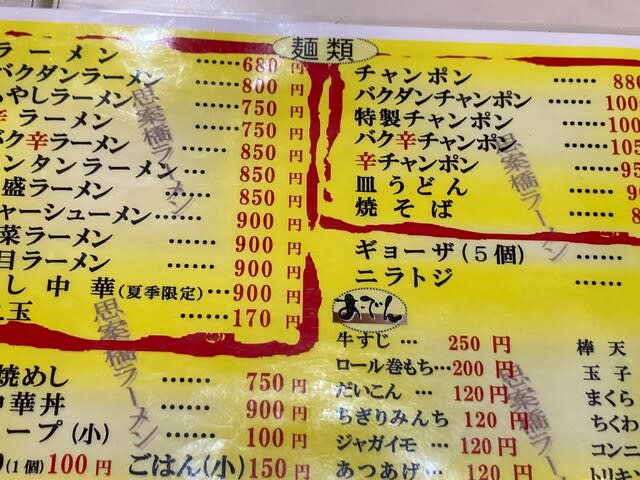 麺類
ラーメン ……680円
バクダンラーメン ……800円
やしラーメン ……750円
辛ラーメン ……750円
バク辛ラーメン ……850円
ンタンラーメン ……850円
盛ラーメン ……850円
ャーシューメン ……900円
菜ラーメン ……900円
目ラーメン ……900円
し中華(夏季限定)…900円
玉 ……170円
焼めし ……750円
中華丼 ……900円
ープ(小) ……100円
(1個)100円 ごはん(小)150円
チャンポン ……880
バクダンチャンポン ……100
特製チャンポン ……100
バク辛チャンポン ……105
辛チャンポン ……95
皿うどん ……9
焼そば ……8
ギョーザ(5個) ……
ニラトジ ……
おでん
牛すじ …… 250円
ロール巻もち…200円
だいこん … 120円
ちぎりみんち 120円
ジャガイモ … 120円
あつあげ … 120円
棒天
玉子
まくら
ちくわ
コンニ
トリキン
思案橋ラーメン
思案橋ラーメン
思案橋ラーメン
思案橋ラー